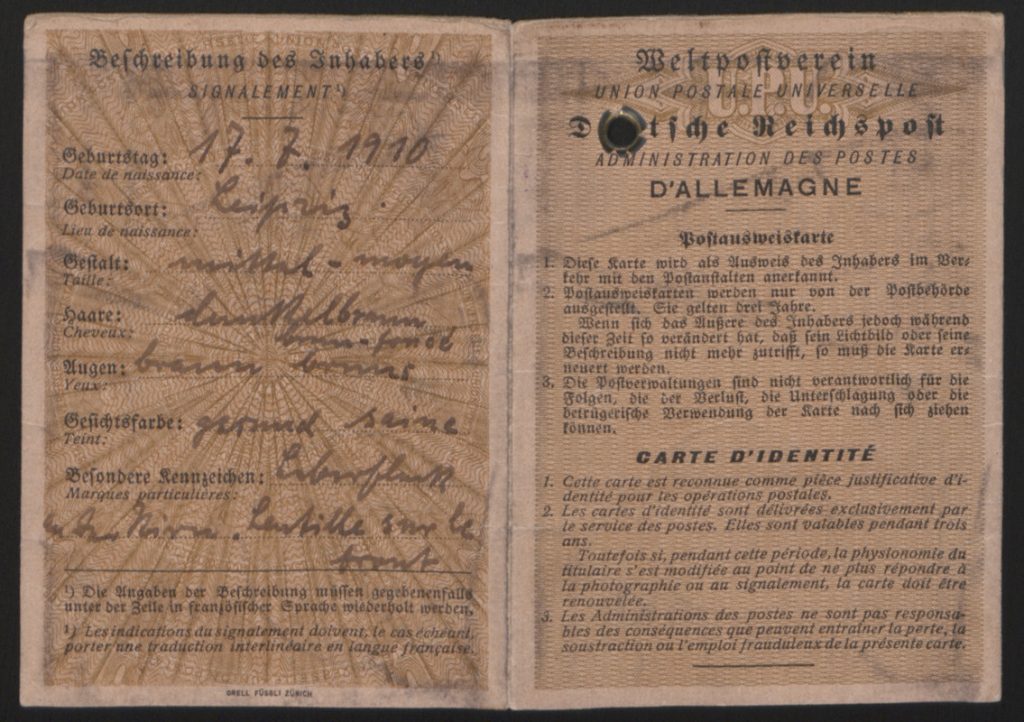 Beschreibung des Inhabers¹)
SIGNALEMENT¹)
Geburtstag: 17. 7. 1910
Date de naissance:
Geburtsort: Leipzig.
Lieu de naissance:
Gestalt: mittel - moyen
Taille:
Haare: dunkelbraun
Cheveux: brun-foncé
Augen: braun bruns
Yeux:
Gesichtsfarbe: gesund saine
Teint:
Besondere Kennzeichen: Leberfleck
Marques particulières:
Stirn. Lentille sur le
front
¹) Die Angaben der Beschreibung müssen gegebenenfalls
unter der Zeile in französischer Sprache wiederholt werden.
¹) Les indications du signalement doivent, le cas échéant,
porter une traduction interlinéaire en langue française.
ORELL FÜSSLI ZÜRICH
Weltpostverein
U.P.U.
UNION POSTALE UNIVERSELLE
D tsche Reichspost
ADMINISTRATION DES POSTES
D'ALLEMAGNE
Postausweiskarte
1. Diese Karte wird als Ausweis des Inhabers im Ver-
kehr mit den Postanstalten anerkannt.
2. Postausweiskarten werden nur von der Postbehörde
ausgestellt. Sie gelten drei Jahre.
Wenn sich das Äußere des Inhabers jedoch während
dieser Zeit so verändert hat, daß sein Lichtbild oder seine
Beschreibung nicht mehr zutrifft, so muß die Karte er-
neuert werden.
3. Die Postverwaltungen sind nicht verantwortlich für die
Folgen, die der Verlust, die Unterschlagung oder die
betrügerische Verwendung der Karte nach sich ziehen
können.
CARTE D'IDENTITÉ
1. Cette carte est reconnue comme pièce justificative d'i-
dentité pour les opérations postales.
2. Les cartes d'identité sont délivrées exclusivement par
le service des postes. Elles sont valables pendant trois
ans.
Toutefois si, pendant cette période, la physionomie du
titulaire s'est modifiée au point de ne plus répondre à
la photographie ou au signalement, la carte doit être
renouvelée.
3. Les Administrations des postes ne sont pas responsa-
bles des conséquences que peuvent entraîner la perte, la
soustraction ou l'emploi frauduleux de la présente carte.